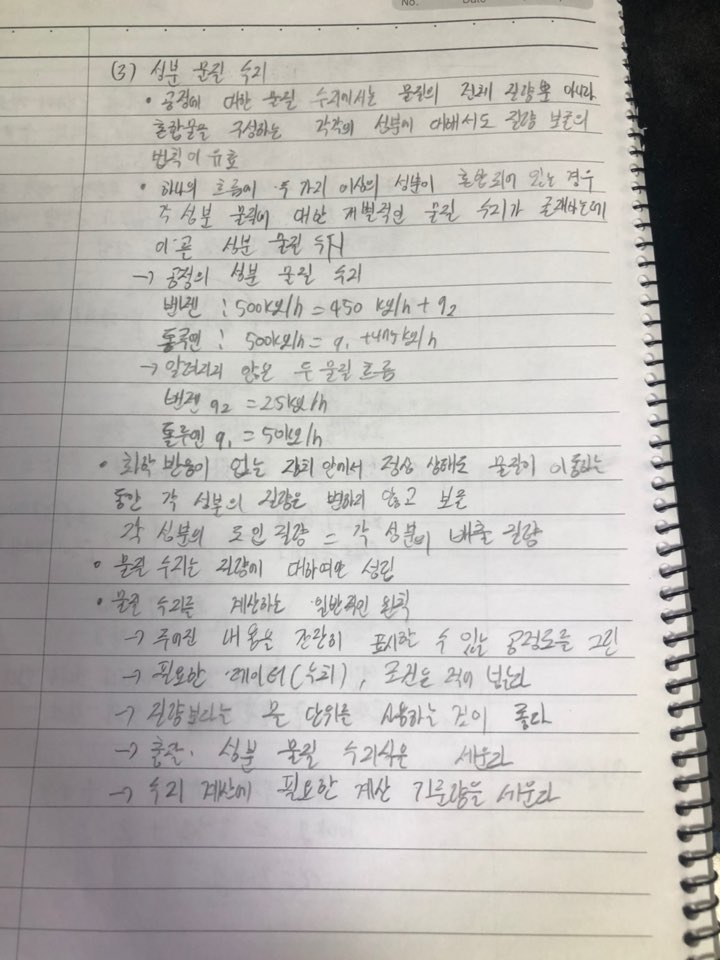 No. Date
(3) 성분 물질 수지
• 공정에 대한 물질 수지에서는 물질의 전체 질량뿐 아니라
혼합물을 구성하는 각각의 성분에 대해서도 질량 보존의
법칙이 유효
• 하나의 흐름에 두 가지 이상의 성분이 혼합되어 있는 경우
각 성분 물질에 대한 개별적인 물질 수지가 존재하는데
이곧 성분 물질 수지
→ 공정의 성분 물질 수지
벤젠 : 500kg/h = 450 kg/h + q2
톨루엔 : 500kg/h = q1 + 475kg/h
→ 알려지지 않은 두 물질 흐름
벤젠 q2 = 25kg/h
톨루엔 q1 = 50kg/h
• 화학 반응이 없는 장치 안에서 정상 상태로 물질이 이동하는
동안 각 성분의 질량은 변하지 않고 보존
각 성분의 도입 질량 = 각 성분의 배출 질량
• 물질 수지는 질량에 대하여만 성립
• 물질 수지를 계산하는 일반적인 원칙
→ 주어진 내용을 간략히 표시할 수 있는 공정도를 그린
→ 필요한 데이터(수치), 조건을 적어 넣는다
→ 질량보다는 몰 단위를 사용하는 것이 좋다
→ 총괄, 성분 물질 수지식을 세운다
→ 수지 계산에 필요한 계산 기준량을 세운다